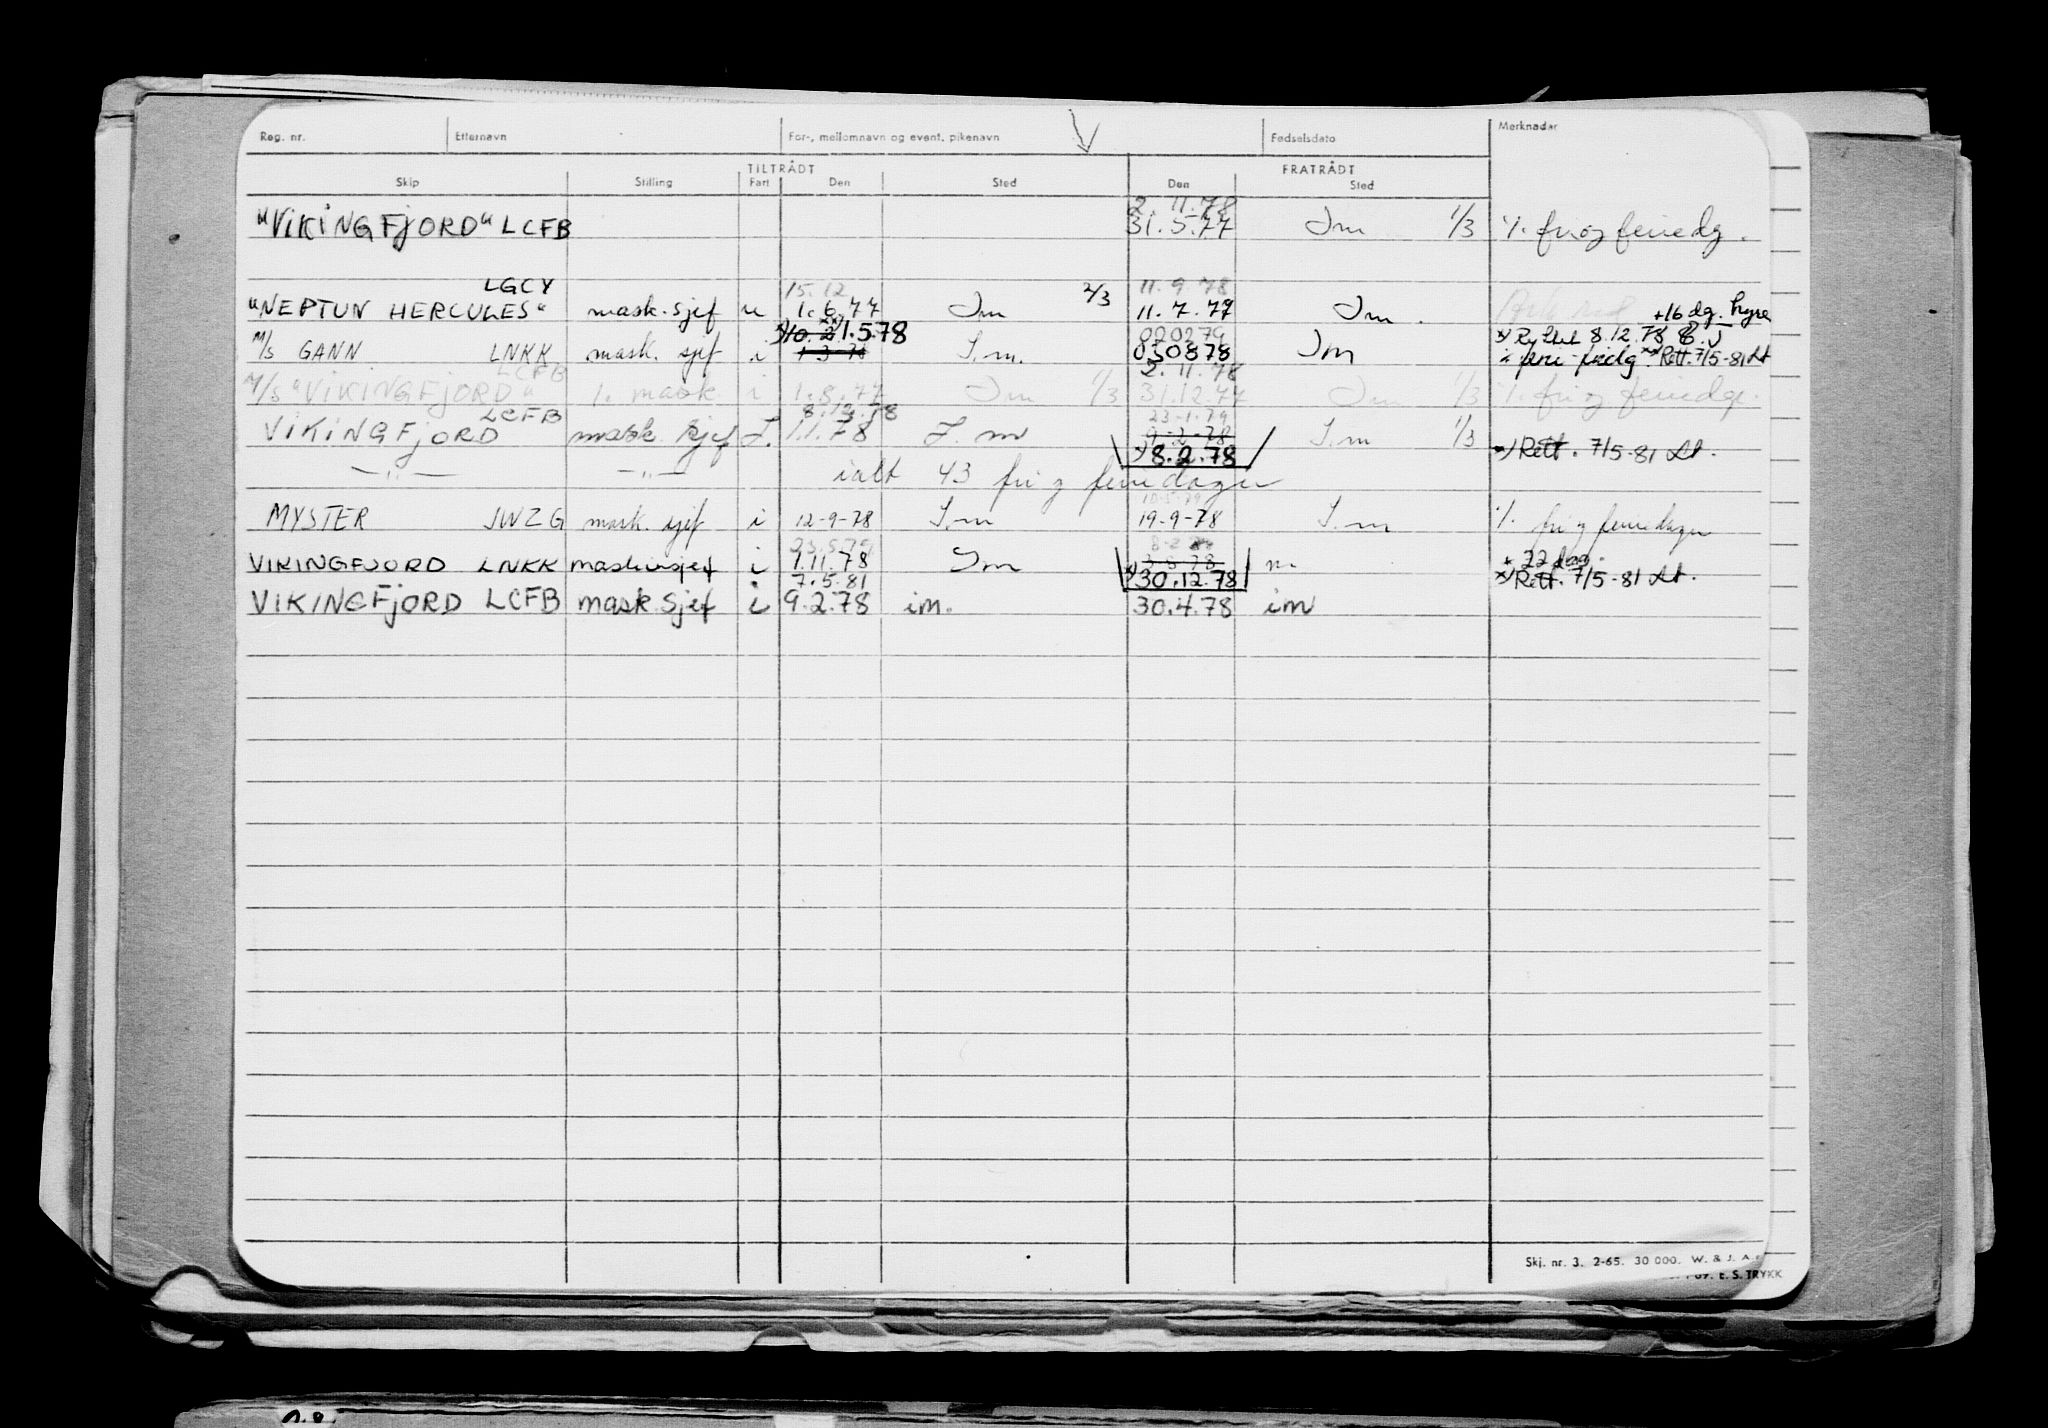 Reg. nr. Etternavn For-, mellomnavn og event. pikenavn Fødselsdato Merknader
TILTRÅDT FRATRÅDT
Skip Stilling Fart Den Sted Den Sted
2.11.78
"VIKINGFJORD" LCFB 31.5.77 Im 1/3 %. fri og feriedg.
LGCY 15.12 11.9 78
"NEPTUN HERCULES" mask.sjef u 1.6.77 Im 2/3 11.7.77 Im. +16 dg. hyre
x) 10.2 xx) 1.5.78 020279 8.12.78
M/S GANN LNKK mask. sjef i 1-3-78 I.m. 030878 Im feri-fridg. xx) Rett. 7/5-81 At
LCFB 2.11.78
M/S "VIKINGFJORD" 1. mask. i 1.8.77 Im 1/3 31.12.77 Im 1/3 %. fri og feriedge.
LCFB 8.12.78 23-1.79
VIKINGFJORD mask. sjef I. 1.1.78 I.m 9-2-78 I.m 1/3
x) 8.2.78 x) Rett. 7/5-81 At.
—"— —"— ialt 43 fri og feriedager
10-5-79
MYSTER JWZG mask. sjef i 12-9-78 I.m 19-9-78 I.m %. fri og feriedager
23.5.79 + 22 dag.
VIKINGFJORD LNKK maskinsjef i 1.11.78 Im 3-8-78 m
7.5.81 x) 30.12.78 x) Rett. 7/5-81 At.
VIKINGFJORD LCFB mask.sjef i 9.2.78 im. 30.4.78 im
Skj. nr. 3. 2-65. 30 000. W. & J. A.
E. S. TRYKK